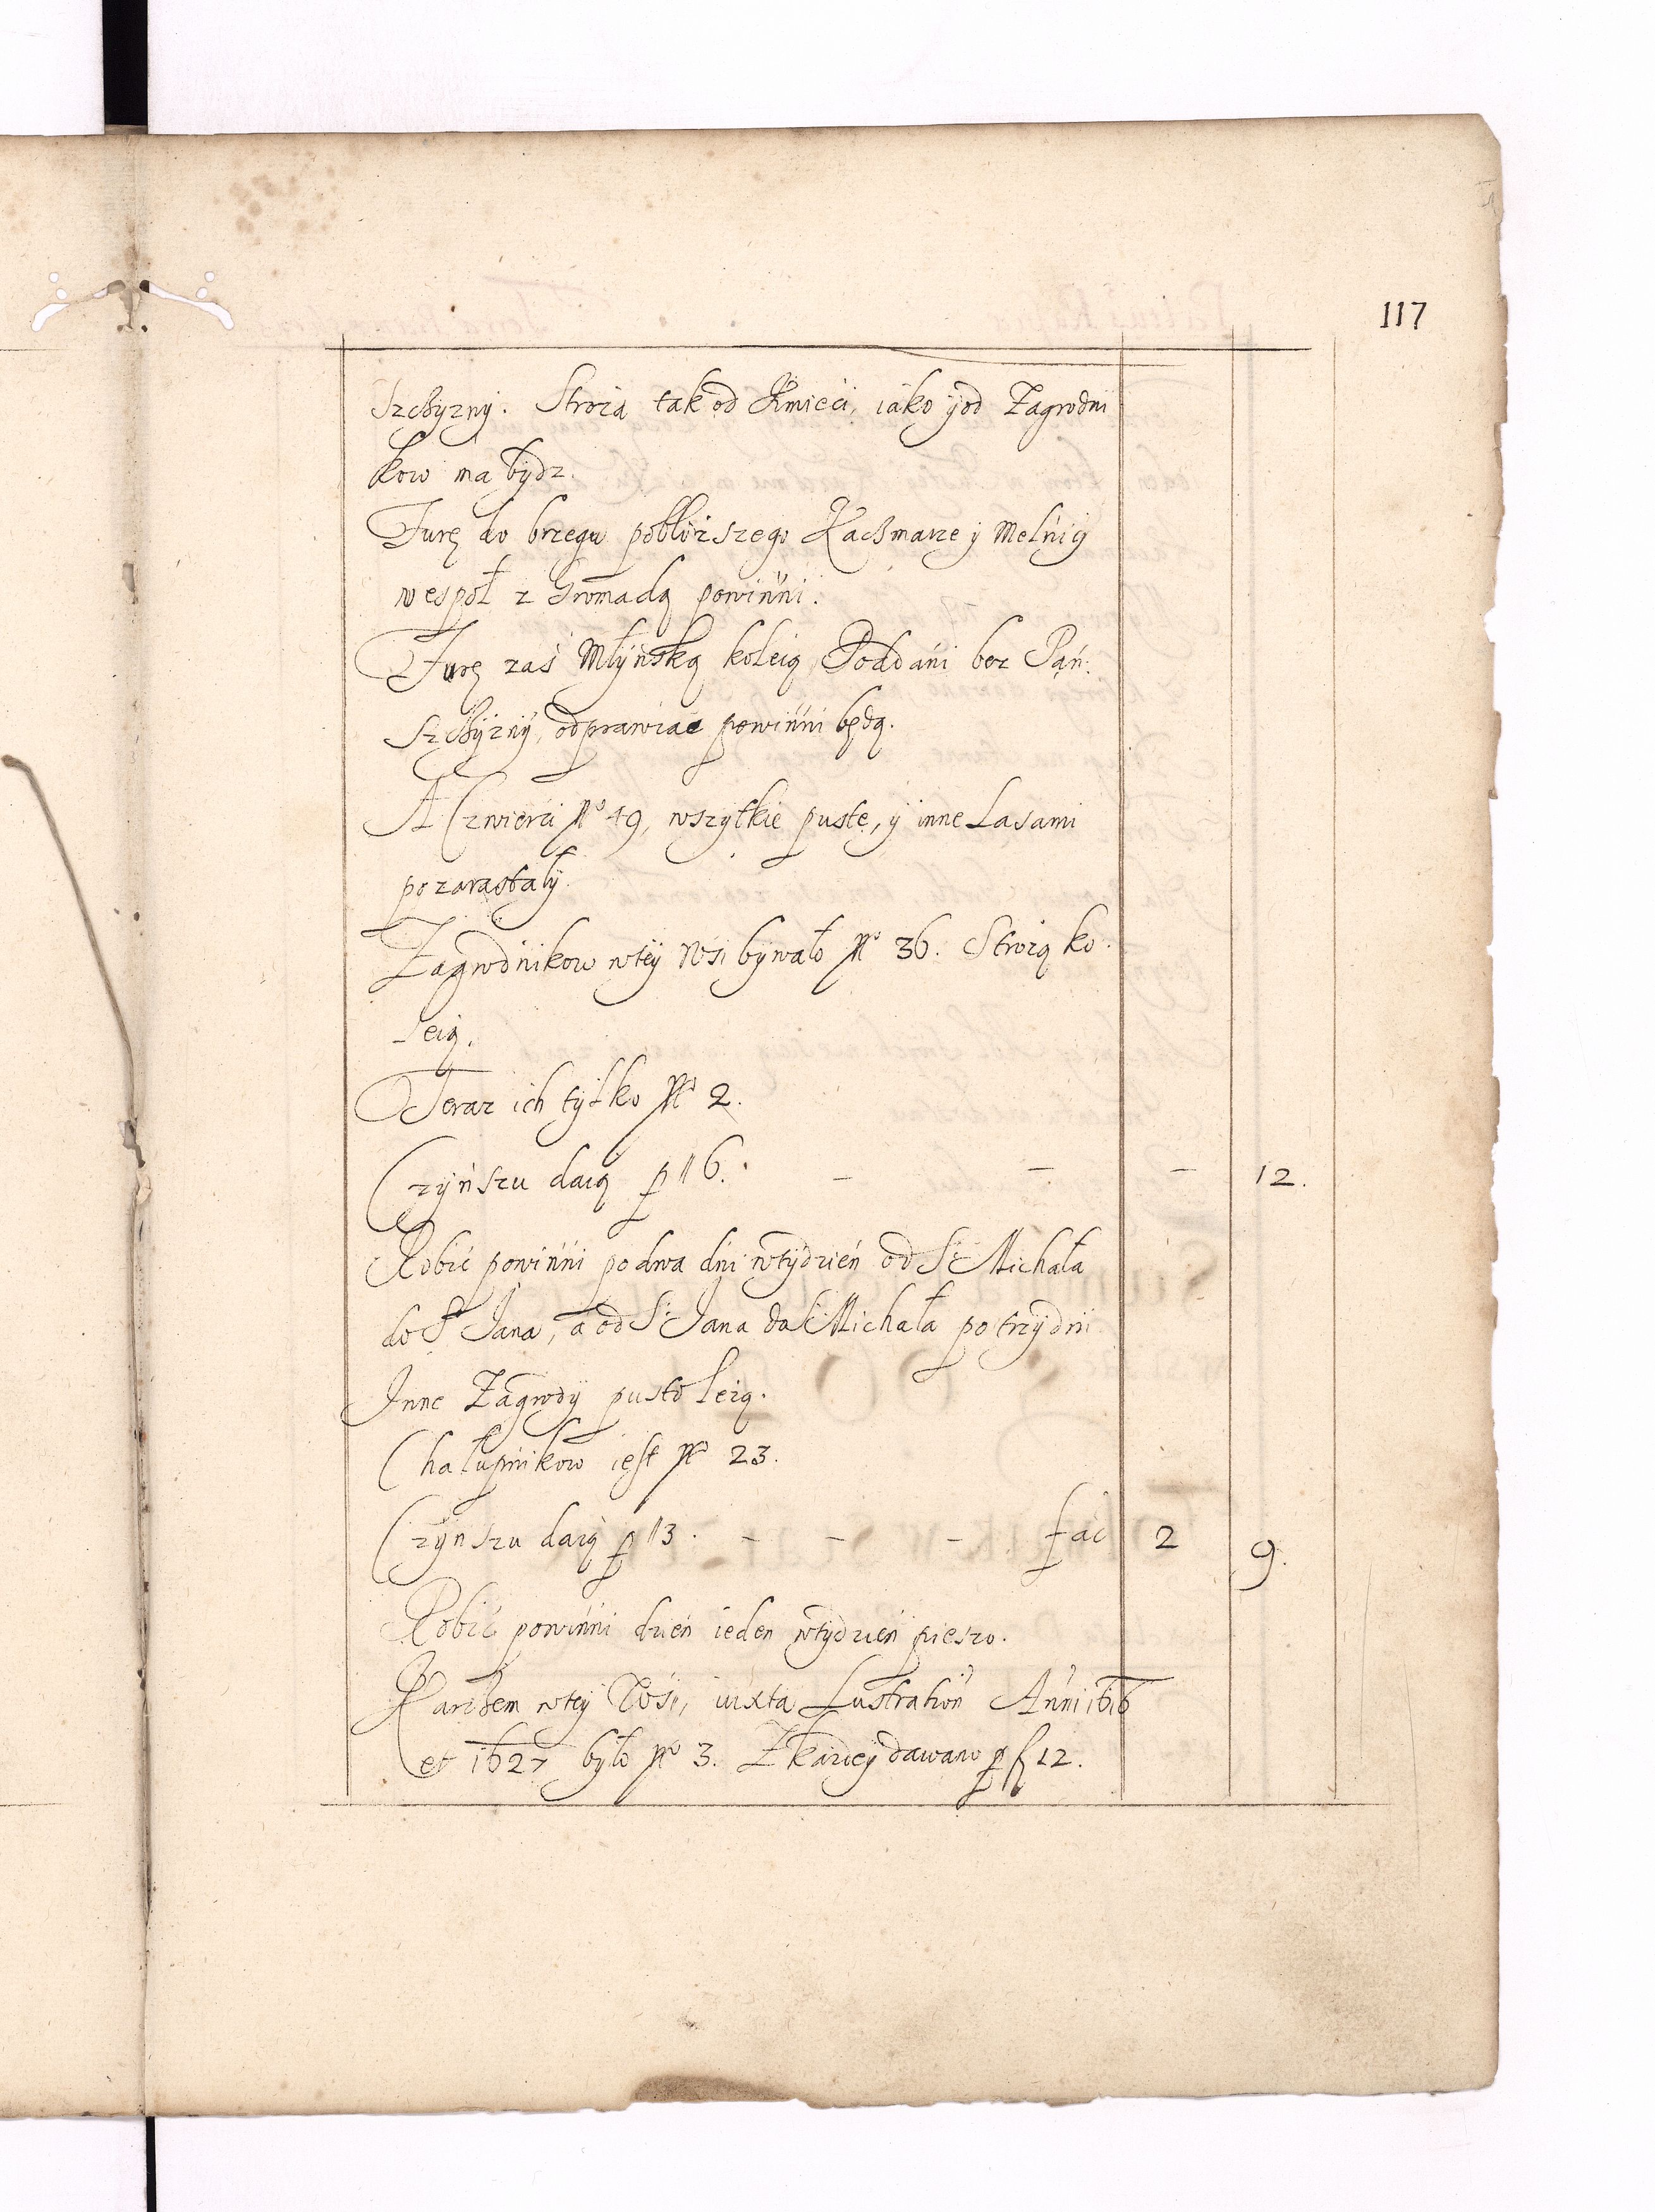 117
szczyzny. Stroża tak od Kmieci, iako y od Zagrodni
kow ma bydz.
Furę do brzegu pobliższego Kaczmarze y Melnicy
wespoł z Gromadą powinni.
Furę zaś Młynską koleią Poddani bez Pań:
szczyzny, odprawiac powinni będą.
A Czwierci No 49, wszytkie puste, y inne Lasami
pozarastały.
Zagrodnikow wtey Wsi bywało No 36. Strożą ko:
leią.
Teraz ich tylko No 2.
Czynszu daią p 6. - - - 12.
Robić powinni po dwa dni wtydzień od S Michała
do S Jana, a od S Jana do S Michała po trzy dni
Inne Zagrody pusto leżą.
Chałupnikow iest No 23.
Czynszu daią p 3. - - - fac 2 9.
Robić powinni dzień ieden wtydzień pieszo.
Karczem wtey Wsi, iuxta Lustration Anni 1616
et 1627 było No 3. Z każdey dawano p f 12.